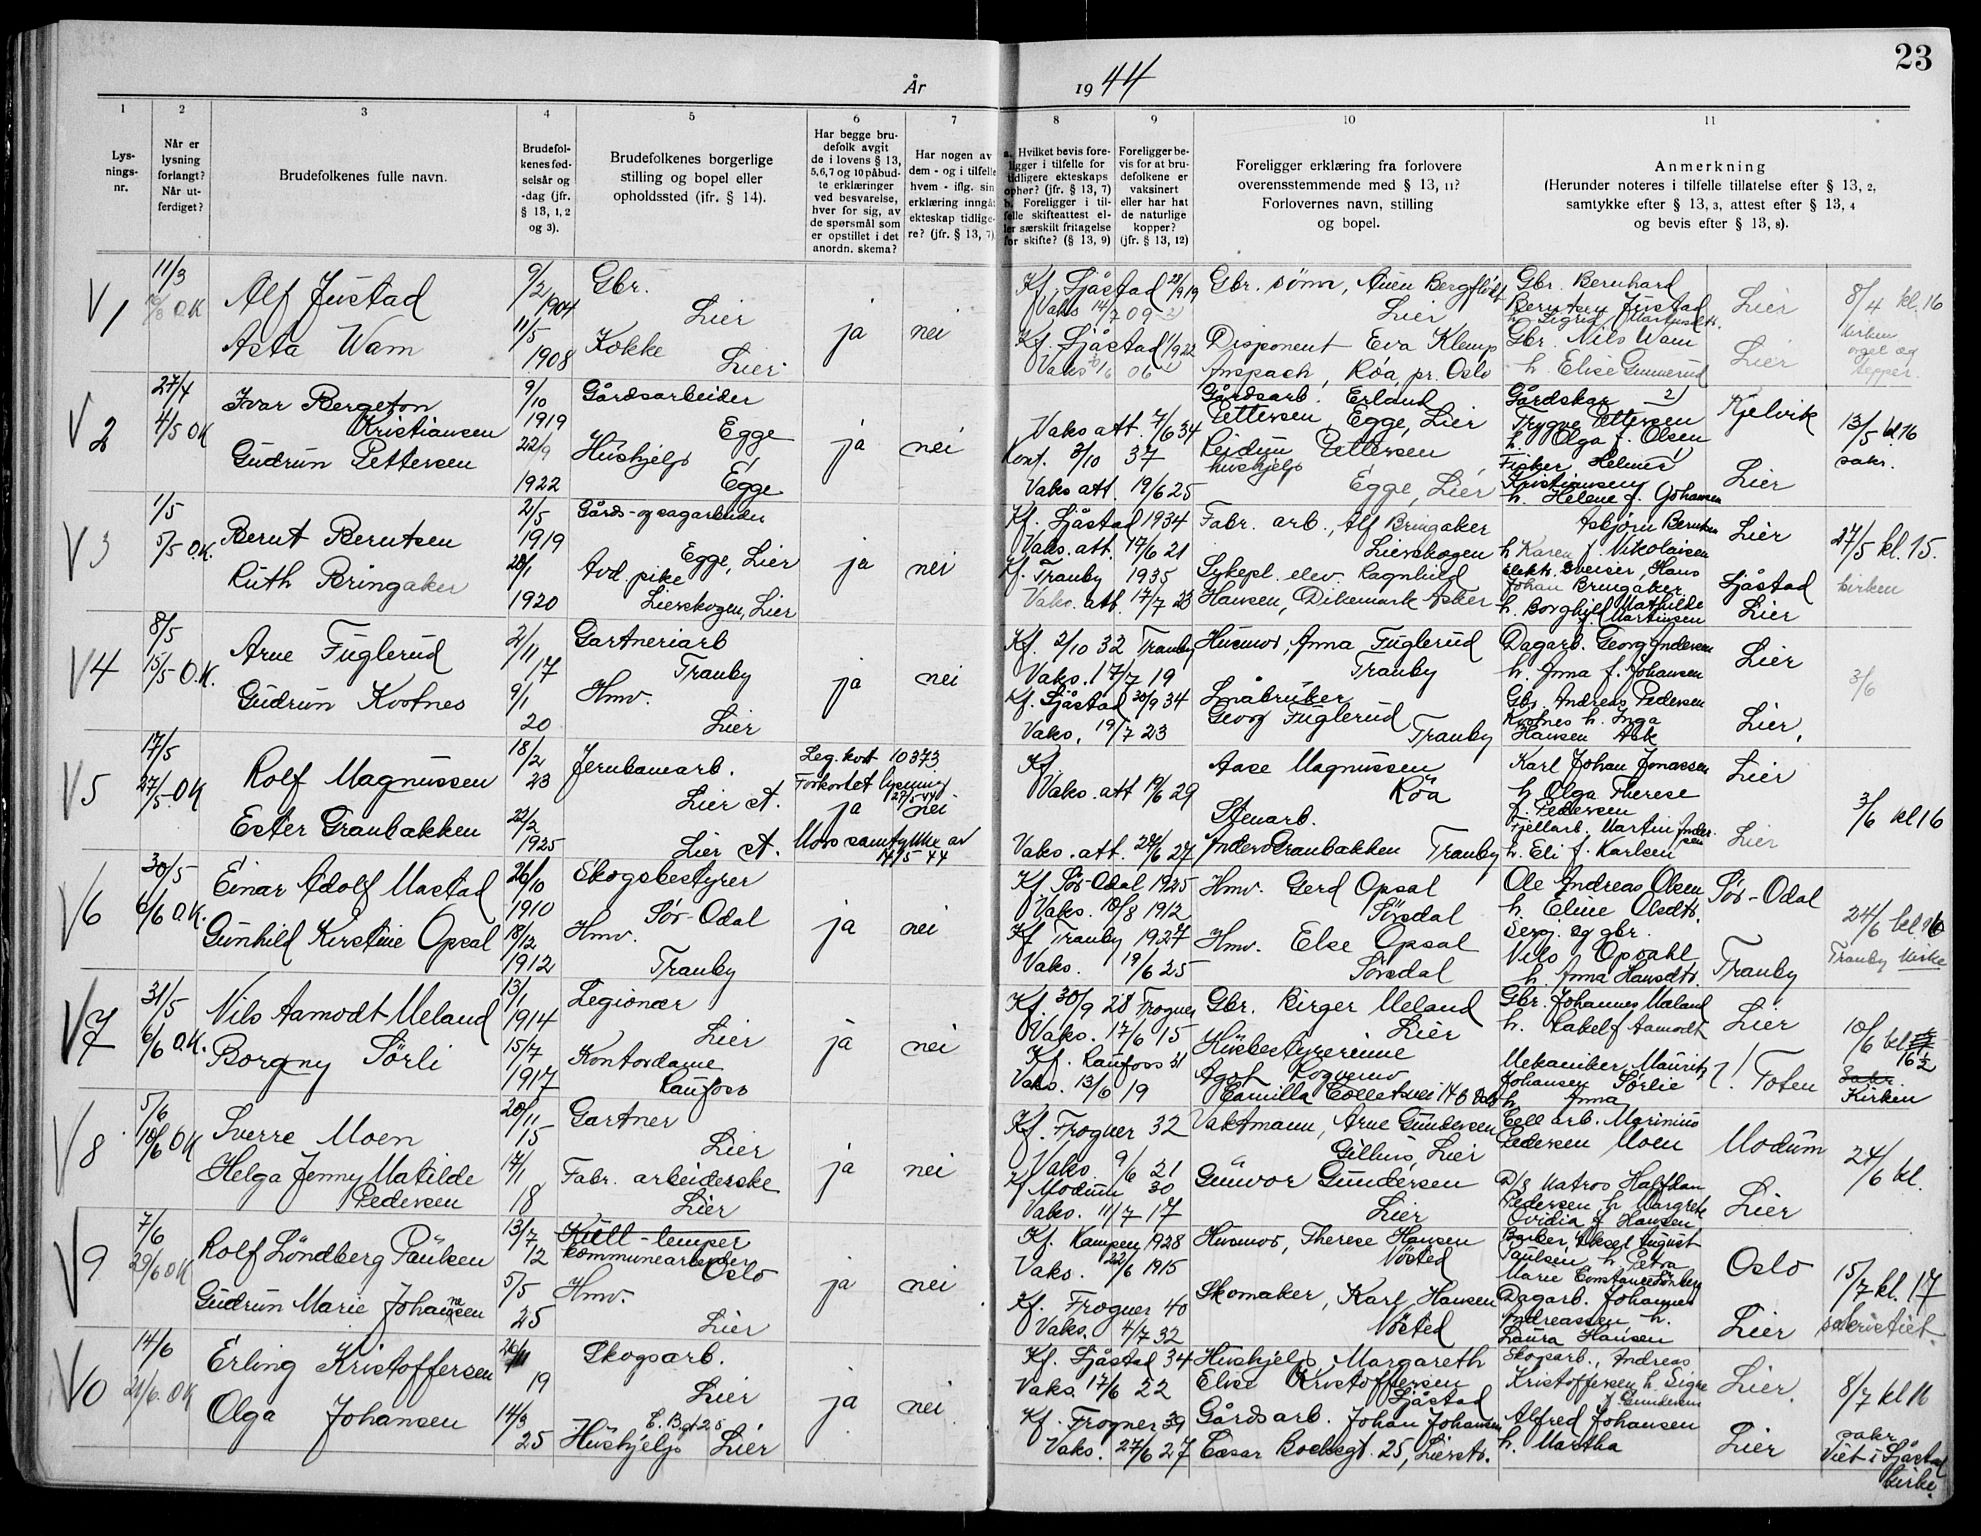 23
År 1944
1
2
3
4
5
6
7
8
9
10
11
Lys-
nings-
nr.
Når er
lysning
forlangt?
Når ut-
ferdiget?
Brudefolkenes fulle navn.
Brudefol-
kenes fød-
selsår og
-dag (jfr.
§ 13, 1, 2
og 3).
Brudefolkenes borgerlige
stilling og bopel eller
opholdssted (jfr. § 14).
Har begge bru-
defolk avgit
de i lovens § 13,
5,6,7 og 10 påbud-
te erklæringer
ved besvarelse,
hver for sig, av
de spørsmål som
er opstillet i det
anordn. skema?
Har nogen av
dem - og i tilfelle
hvem - iflg. sin
erklæring inngåt
ekteskap tidlige-
re? (jfr. § 13, 7)
a. Hvilket bevis fore-
ligger i tilfelle for
tidligere ekteskaps
ophør? (jfr. § 13, 7)
b. Foreligger i til-
felle skifteattest el-
ler særskilt fritagelse
for skifte? (§ 13, 9)
Foreligger be-
vis for at bru-
defolkene er
vaksinert
eller har hat
de naturlige
kopper?
(jfr. § 13, 12)
Foreligger erklæring fra forlovere
overensstemmende med § 13, 11?
Forlovernes navn, stilling
og bopel.
Anmerkning
(Herunder noteres i tilfelle tillatelse efter § 13, 2,
samtykke efter § 13, 3, attest efter § 13, 4
og bevis efter § 13, 8).
V 1
11/3
O.K
Alf Justad
Asta Wam
9/2 1904
11/5 1908
Gbr.
Lier
Kokke
Lier
ja
nei
Kf. Sjåstad 28/9 19
Vaks 14/7 09
Kf. Sjåstad 1/9 22
Vaks 06
Gbr. sønn,
Lier
Disponent Eva Klemp
Anspach, Röa, pr. Oslo
Gbr. Bernhard
Berntsen Justad
h. Sigrid
Gbr. Nils Wam
h. Elise Gunnerud
Lier
Lier
8/4 kl. 16
Kirken
orgel og
tepper.
V 2
27/4
4/5 OK
Ivar Bergeton
Kristiansen
Gudrun Pettersen
9/10
1919
22/9
1922
Gårdsarbeider
Egge
Hushjelp
Egge
ja
nei
Vaks att. 7/6 34
Konf. 3/10 37
Vaks att. 19/6 25
Gårdsarb. Erland
Pettersen, Egge, Lier
Reidun Pettersen
hushjelp
Egge, Lier
Gårdskar
Trygve Pettersen
h Olga f. Olsen
Fisker Helmer
Kristiansen
h. Helene f. Johansen
Kjelvik
Lier
13/5 kl. 16
sakr.
V 3
1/5
5/5 O.K.
Bernt Berntsen
Ruth Bringaker
2/5
1919
28/1
1920
Gårds- og sagarbeider
Egge, Lier
Avd. pike
Lierskogen, Lier
ja
nei
Kf. Sjåstad 1934
Vaks. att. 17/6 21
Kf. Tranby 1935
Vaks. att. 17/7 23
Fabr. arb., Alf Bringaker
Lierskogen
Sykepl. elev. Ragnhild
Hansen, Dikemark Asker
Asbjørn Berntsen
h Karen f. Nikolaisen
Elektr. sveiser, Hans
Johan Bringaker
h. Borghild Mathilde
f. Martinsen
Lier
Sjåstad
Lier
27/5 kl. 15.
kirken
V 4
8/5
15/5 - O.K.
Arne Fuglerud
Gudrun Kvotnes
2/11
17
9/1
20
Gartneriarb
Tranby
Hmv.
Lier
ja
nei
Kf. 2/10 32 Tranby
Vaks. 17/7 19
Kf. Sjåstad 30/9 34
Vaks. 19/7 23
Husmor, Anna Fuglerud
Tranby
Småbruker
Georg Fuglerud
Tranby
Dagarb. Georg Andersen
h. Anna f. Johansen
Gbr. Andreas Pedersen
Kvotnes h. Inga
Hansen Ask
Lier
Lier.
3/6
V 5
17/5
27/5 - OK
Rolf Magnussen
Ester Graubakken
18/2
23
22/2
1925
Jernbanearb.
Lier st.
Lier st.
Leg. kort 10373
Forkortet lysning
27/5 44
ja
nei
Mors samtykke av
14/5 44
Kf
Vaks. att 19/6 29
Vaks. att. 24/6 27
Aase Magnussen
Röa
Stenarb.
Anders Graubakken Tranby
Karl Johan Jonassen
h Olga Therese
f. Pedersen
Fjellarb. Martin Ander-
sen
h. Eli f. Karlsen
Lier
Lier
3/6 kl 16
V 6
30/5
6/6 O.K.
Einar Adolf Mastad
Gunhild Kirstine Opsal
26/10
1910
18/12
1912
Skogsbestyrer
Sör-Odal
Hmv.
Tranby
ja
nei
Kf. Sör-Odal 1925
Vaks. 18/8 1912
Kf. Tranby 1927
Vaks. 19/6 25
Hmv. Gerd Opsal
Sörsdal
Hmv. Else Opsal
Sörsdal
Ole Andreas Olsen
h. Eline Olsdtr.
Serg. og gbr.
Nils Opsahl
h. Anna Hansdtr.
Sör-Odal
Tranby
24/6 kl. 16
Tranby kirke
V 7
31/5
6/6 O.K.
Nils Aamodt Meland
Borgny Sörli
13/1
1914
15/7
1917
Legionær
Lier
Kontordame
Raufoss
ja
nei
Kf. 30/9 28 Frogner
Vaks. 17/6 15
Kf. Raufoss 31
Vaks. 13/6 19
Gbr. Birger Meland
Lier
Husbestyrerinne
Camilla Colletsvei 14 b Oslo
Gbr. Johannes Meland
h. Rakel f Aamodt
Mekaniker Mauritz
Johansen Sörlie
h Anna
Lier
V! Toten
10/6 kl
16 1/2
Sakr.
Kirken
V 8
5/6
10/6 OK
Sverre Moen
Helga Jenny Matilde
Pedersen
20/11
15
17/1
18
Gartner
Lier
Fabr. arbeiderske
Lier
ja
nei
Kf. Frogner 32
Vaks. 9/6 21
Kf Modum 30
Vaks. 11/7 17
Vaktmann, Arne Gundersen
Gilhus, Lier
Gunvor Gundersen
Lier
Cell arb. Marinius
Pedersen Moen
D/S Matros Halfdan
Pedersen h Margrete
Ovidia f Hansen
Modum
Lier
24/6 kl.
V 9
7/6
29/6 OK
Rolf Löndberg Paulsen
Gudrun Marie Johannesen
13/7
12
5/5
25
kommunearbeider
Oslo
Hmv.
Lier
ja
nei
Kf. Kampen 1928
Vaks. 22/6 1915
Kf. Frogner 40
Vaks. 4/7 32
Husmor, Therese Hansen
Nösted
Skomaker, Karl Hansen
Nösted
Barber, Aksel August
Paulsen h Petra
Marie Constance
Dagarb. Johannes
Andreassen, h.
Laura Hansen
Oslo
Lier
15/7 kl. 17
sakristiet
V 0
14/6
21/6. OK
Erling Kristoffersen
Olga Johansen
19
14/3
25
Skogsarb.
Lier
Hushjelp Lier
ja
nei
Kf. Sjåstad 34
Vaks. 17/6 22
Kf. Frogner 39
Vaks. 27/6 27
Hushjelp Margareth
Elise Kristoffersen
Sjåstad
Gårdsarb. Johan Johansen
Cæsar Boeksgt. 25, Lierstr.
Skogsarb., Andreas
Kristoffersen h. Signe
f Gundersen
Alfred Johansen
h. Martha
Lier.
Lier
8/7 kl 16
sakr
Viet i Sjåstad
kirke.